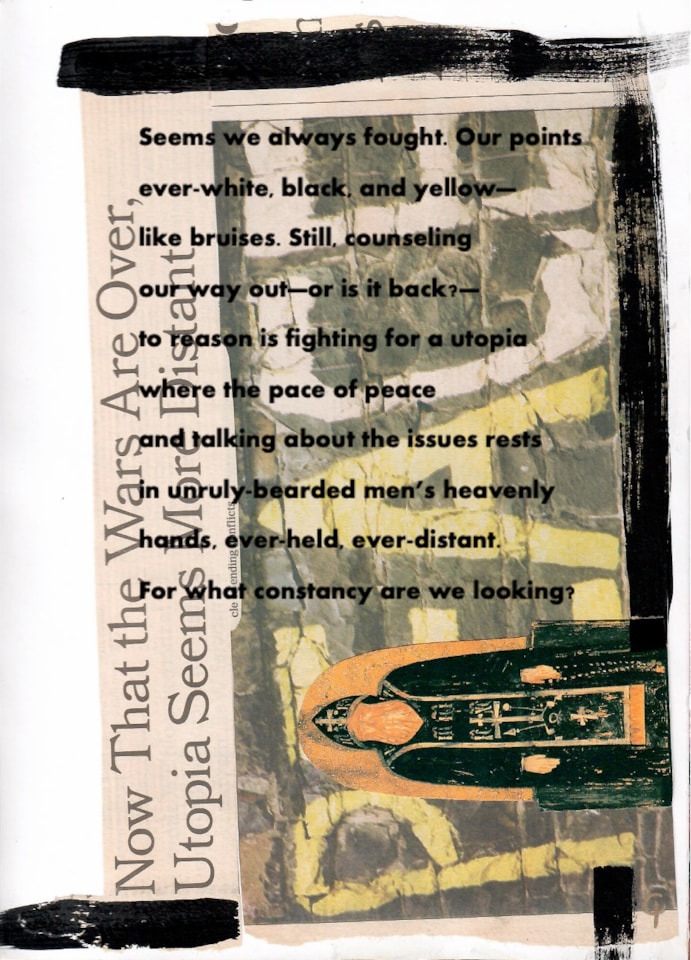 Seems we always fought. Our points
ever-white, black, and yellow—
like bruises. Still, counseling
our way out—or is it back?—
to reason is fighting for a utopia
where the pace of peace
and talking about the issues rests
in unruly-bearded men's heavenly
hands, ever-held, ever-distant.
For what constancy are we looking?
Now That the Wars Are Over,
Utopia Seems More Distant